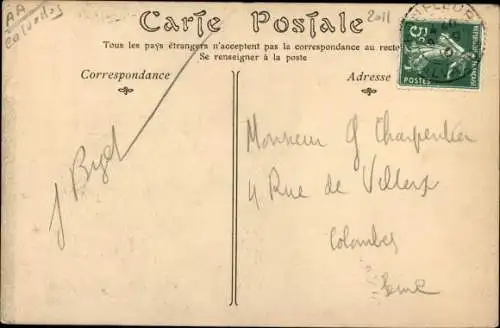 AA
Calvados
Carte Postale
2011
Tous les pays étrangers n'acceptent pas la correspondance au recto
Se renseigner à la poste
Correspondance
Adresse
5c
POSTES
Monsieur G Charpentier
4 Rue de Villers
Colombes
Seine
J